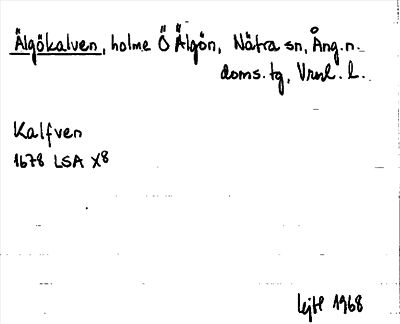 Älgökalven, holme Ö Älgön, Nätra sn, Ång. n.
doms. tg, Vrnl. l.
Kalfven
1678 LSA X8
1968